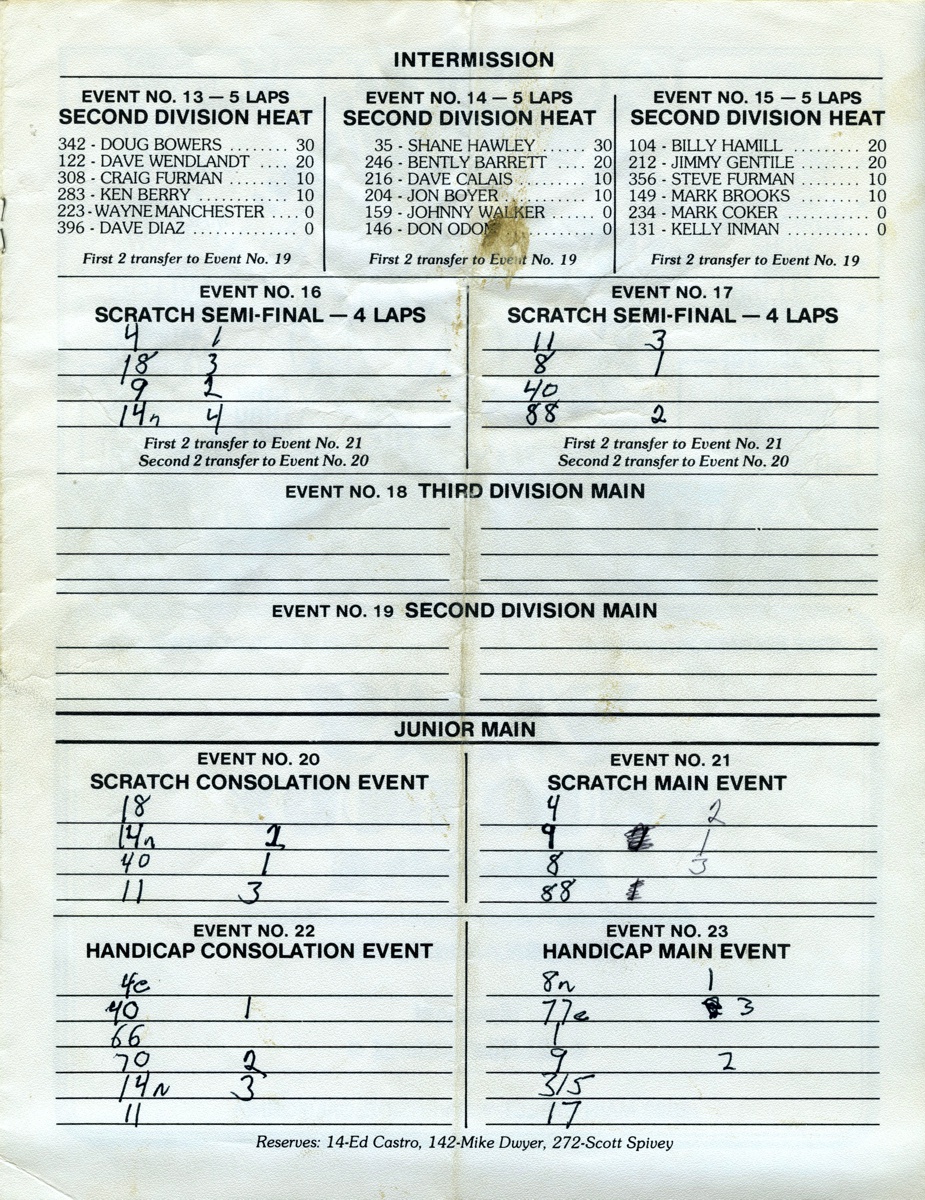 INTERMISSION
EVENT NO. 13 — 5 LAPS
SECOND DIVISION HEAT
342 - DOUG BOWERS ........ 30
122 - DAVE WENDLANDT .... 20
308 - CRAIG FURMAN ....... 10
283 - KEN BERRY ............ 10
223 - WAYNE MANCHESTER .... 0
396 - DAVE DIAZ .............. 0
First 2 transfer to Event No. 19
EVENT NO. 14 — 5 LAPS
SECOND DIVISION HEAT
35 - SHANE HAWLEY ..... 30
246 - BENTLY BARRETT .... 20
216 - DAVE CALAIS ......... 10
204 - JON BOYER .......... 10
159 - JOHNNY WALKER ..... 0
146 - DON ODOM ........... 0
First 2 transfer to Event No. 19
EVENT NO. 15 — 5 LAPS
SECOND DIVISION HEAT
104 - BILLY HAMILL ......... 20
212 - JIMMY GENTILE ....... 20
356 - STEVE FURMAN ...... 10
149 - MARK BROOKS ....... 10
234 - MARK COKER ......... 0
131 - KELLY INMAN .......... 0
First 2 transfer to Event No. 19
EVENT NO. 16
SCRATCH SEMI-FINAL — 4 LAPS
4 1
18 3
9 2
14n 4
First 2 transfer to Event No. 21
Second 2 transfer to Event No. 20
EVENT NO. 17
SCRATCH SEMI-FINAL — 4 LAPS
11 3
8 1
40
88 2
First 2 transfer to Event No. 21
Second 2 transfer to Event No. 20
EVENT NO. 18 THIRD DIVISION MAIN
EVENT NO. 19 SECOND DIVISION MAIN
JUNIOR MAIN
EVENT NO. 20
SCRATCH CONSOLATION EVENT
18
14n 2
40 1
11 3
EVENT NO. 21
SCRATCH MAIN EVENT
4 2
9 1
8 3
88
EVENT NO. 22
HANDICAP CONSOLATION EVENT
4c
40 1
66
70 2
14n 3
11
EVENT NO. 23
HANDICAP MAIN EVENT
8n 1
77e 3
1
9 2
315
17
Reserves: 14-Ed Castro, 142-Mike Dwyer, 272-Scott Spivey